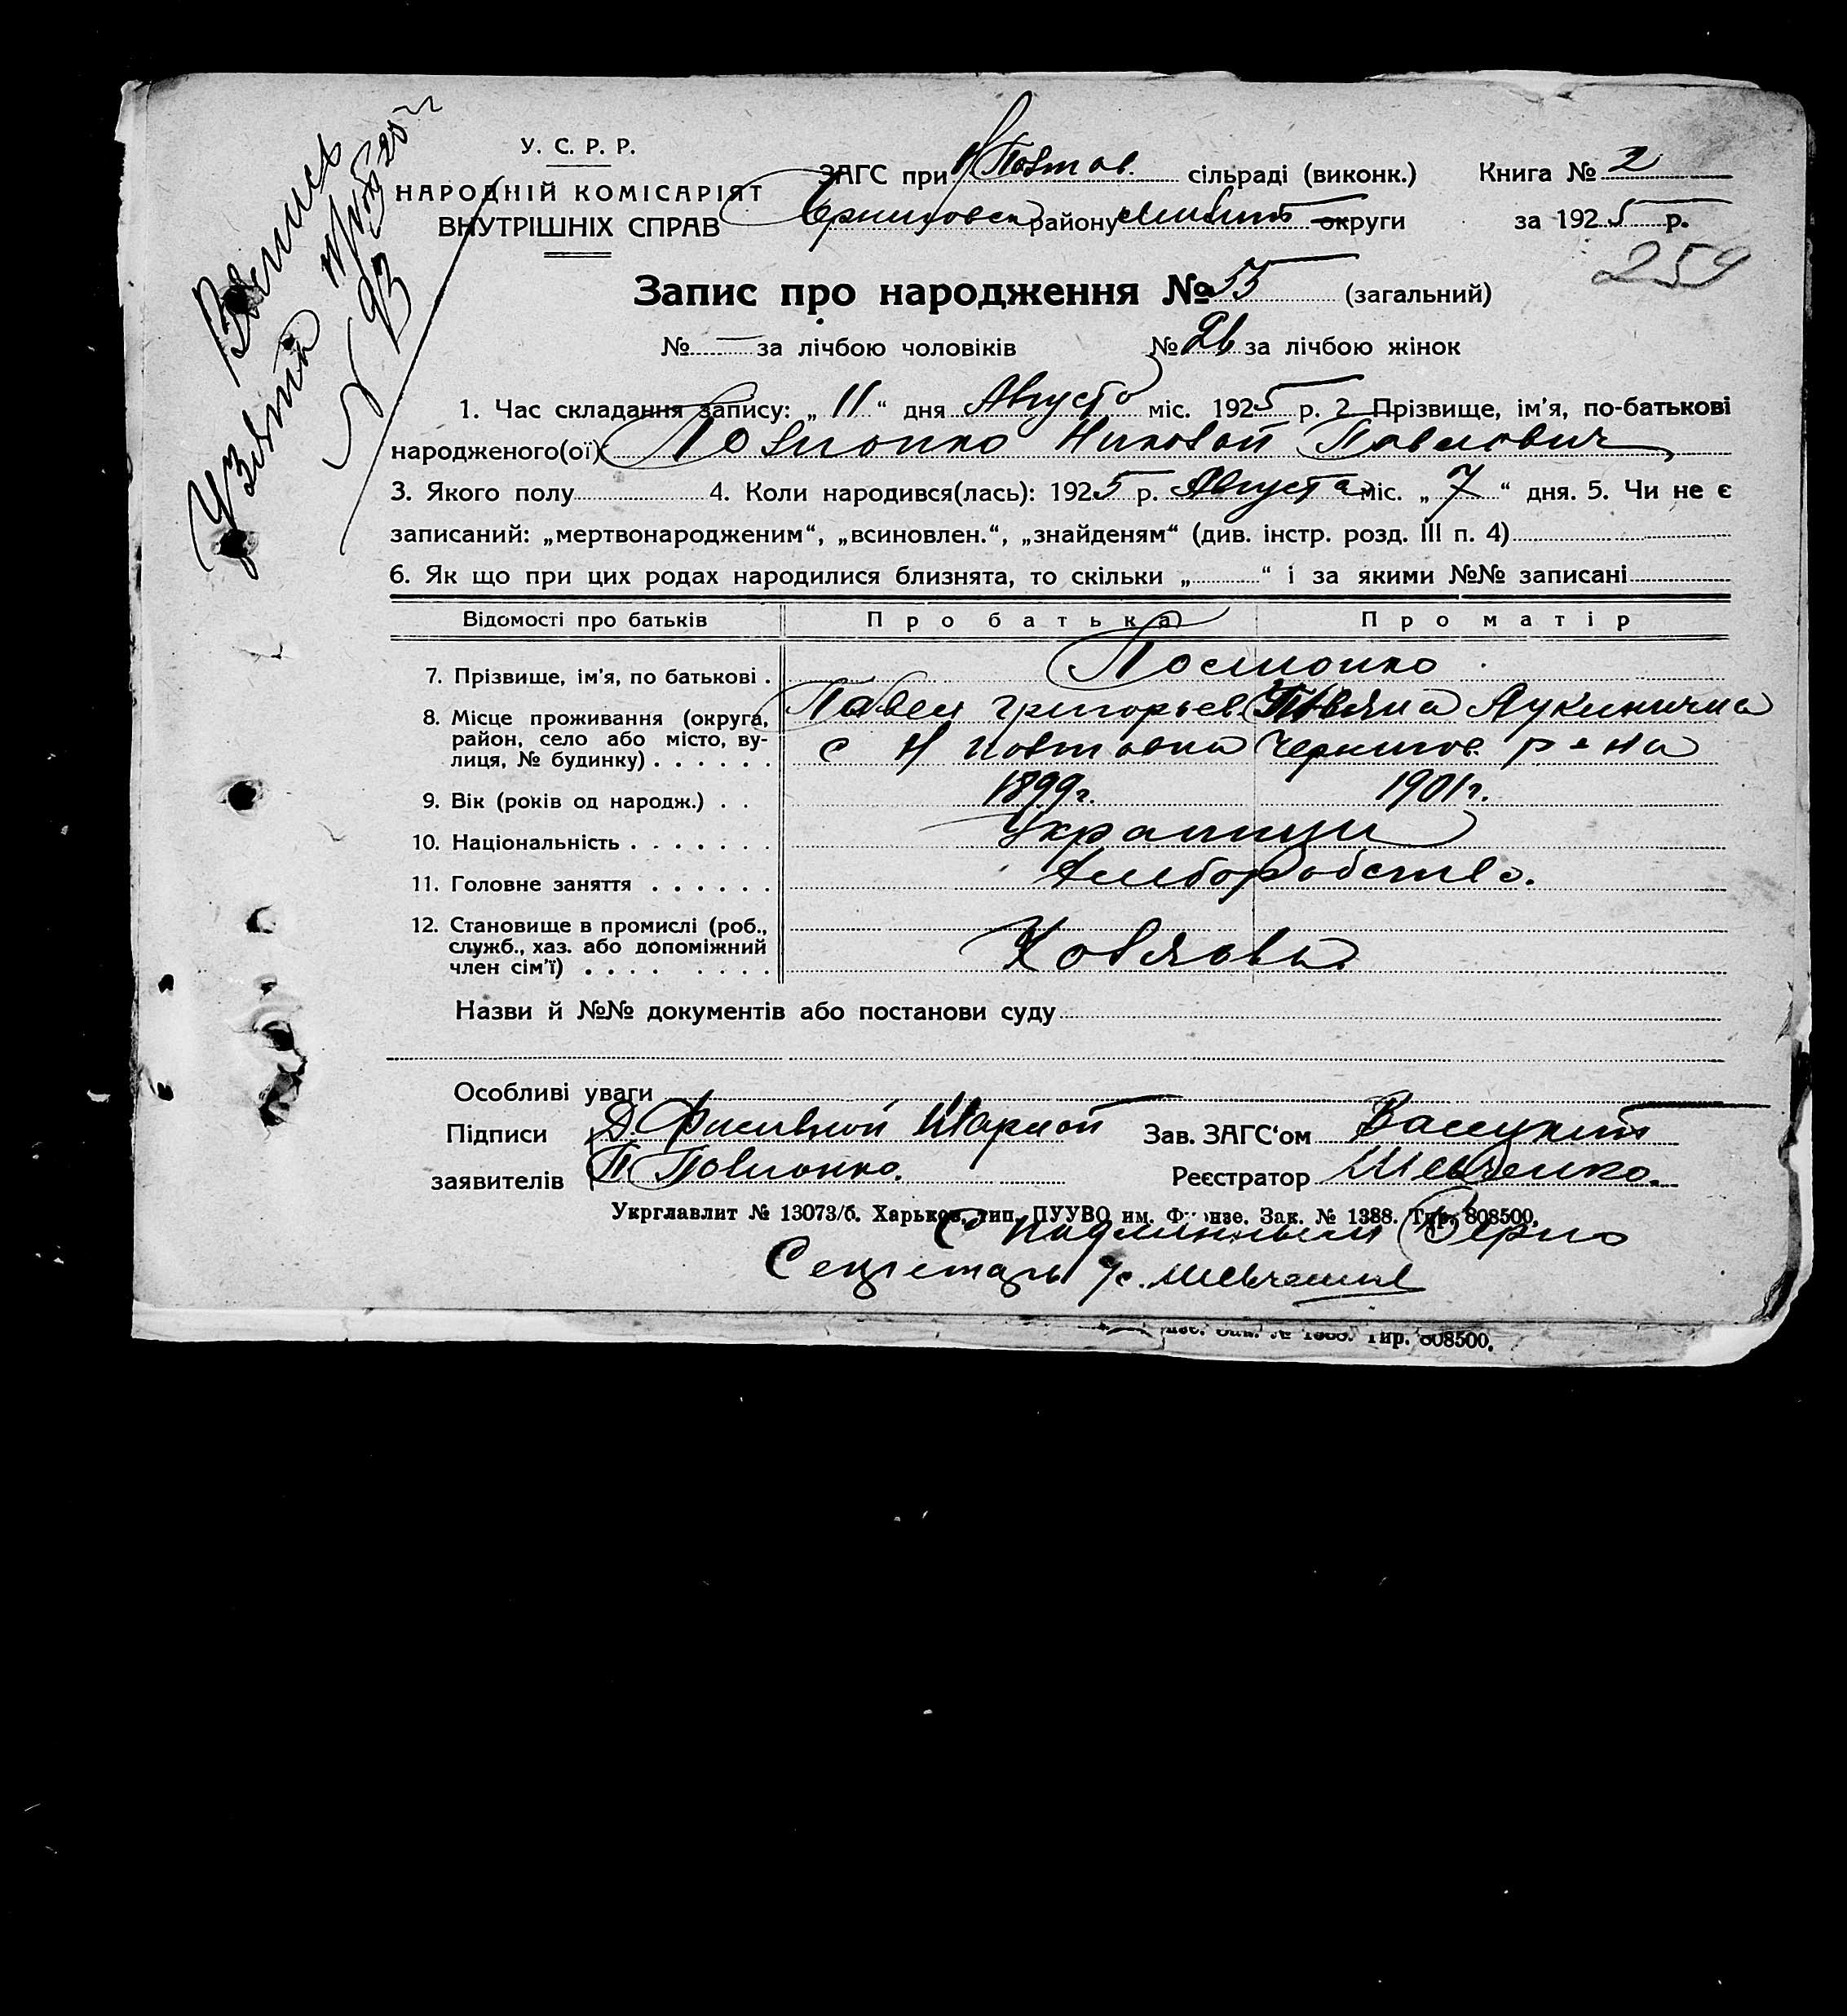 Выпись
Узята
У. С. Р. Р.
НАРОДНІЙ КОМІСАРІЯТ
ВНУТРІШНІХ СПРАВ
ЗАГС при Н Повтов. сільраді (виконк.) Книга № 2
району округи за 1925 р.
259
Запис про народження № 55 (загальний)
№ — за лічбою чоловіків № 26 за лічбою жінок
1. Час складання запису: „ 11 “ дня Августа міс. 1925 р. 2. Прізвище, ім’я, по-батькові
народженого(ої) Николай Павлович
3. Якого полу 4. Коли народився(лась): 1925 р. Августа міс. „ 7 “ дня. 5. Чи не є
записаний: „мертвонародженим“, „всиновлен.“, „знайденям“ (див. інстр. розд. III п. 4)
6. Як що при цих родах народилися близнята, то скільки „ “ і за якими №№ записані
Відомості про батьків Про батька Про матір
7. Прізвище, ім’я, по батькові .
Павел Григорьев. Лукинична
8. Місце проживання (округа,
район, село або місто, ву-
лиця, № будинку) . . . . . . с Н Повтовка Чернигов. р-на
9. Вік (років од народж.) . . 1899г. 1901г.
10. Національність . . . . . . . Украинци
11. Головне заняття . . . . . . Хлеборобство.
12. Становище в промислі (роб.,
служб., хаз. або допоміжний
член сім’ї) . . . . . . . .
Назви й №№ документів або постанови суду
Особливі уваги
Підписи Зав. ЗАГС‘ом
заявителів П Реєстратор Шевченко.
Укрглавлит № 13073/б. Харьков, тип. ПУУВО им. Фрунзе. Зак. № 1388. Тир. 808500.
С подлинным Верно
Секретарь с/с. Шевченко
Зак. № 1388. Тир. 808500.